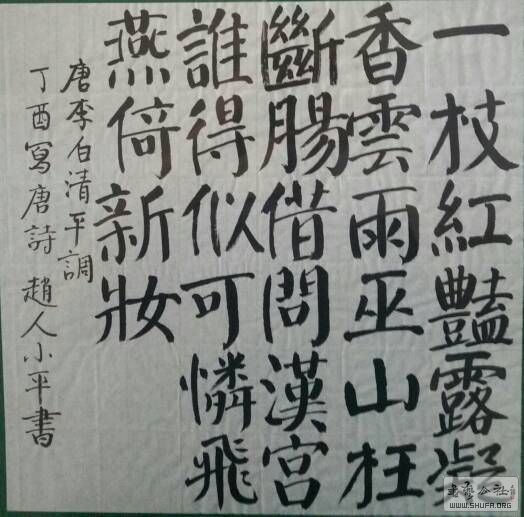 一枝紅豔露凝
香雲雨巫山枉
斷腸借問漢宮
誰得似可憐飛
燕倚新妝
唐李白清平調
丁酉寫唐詩趙人小平書
书艺公社
WWW.SHUFA.ORG